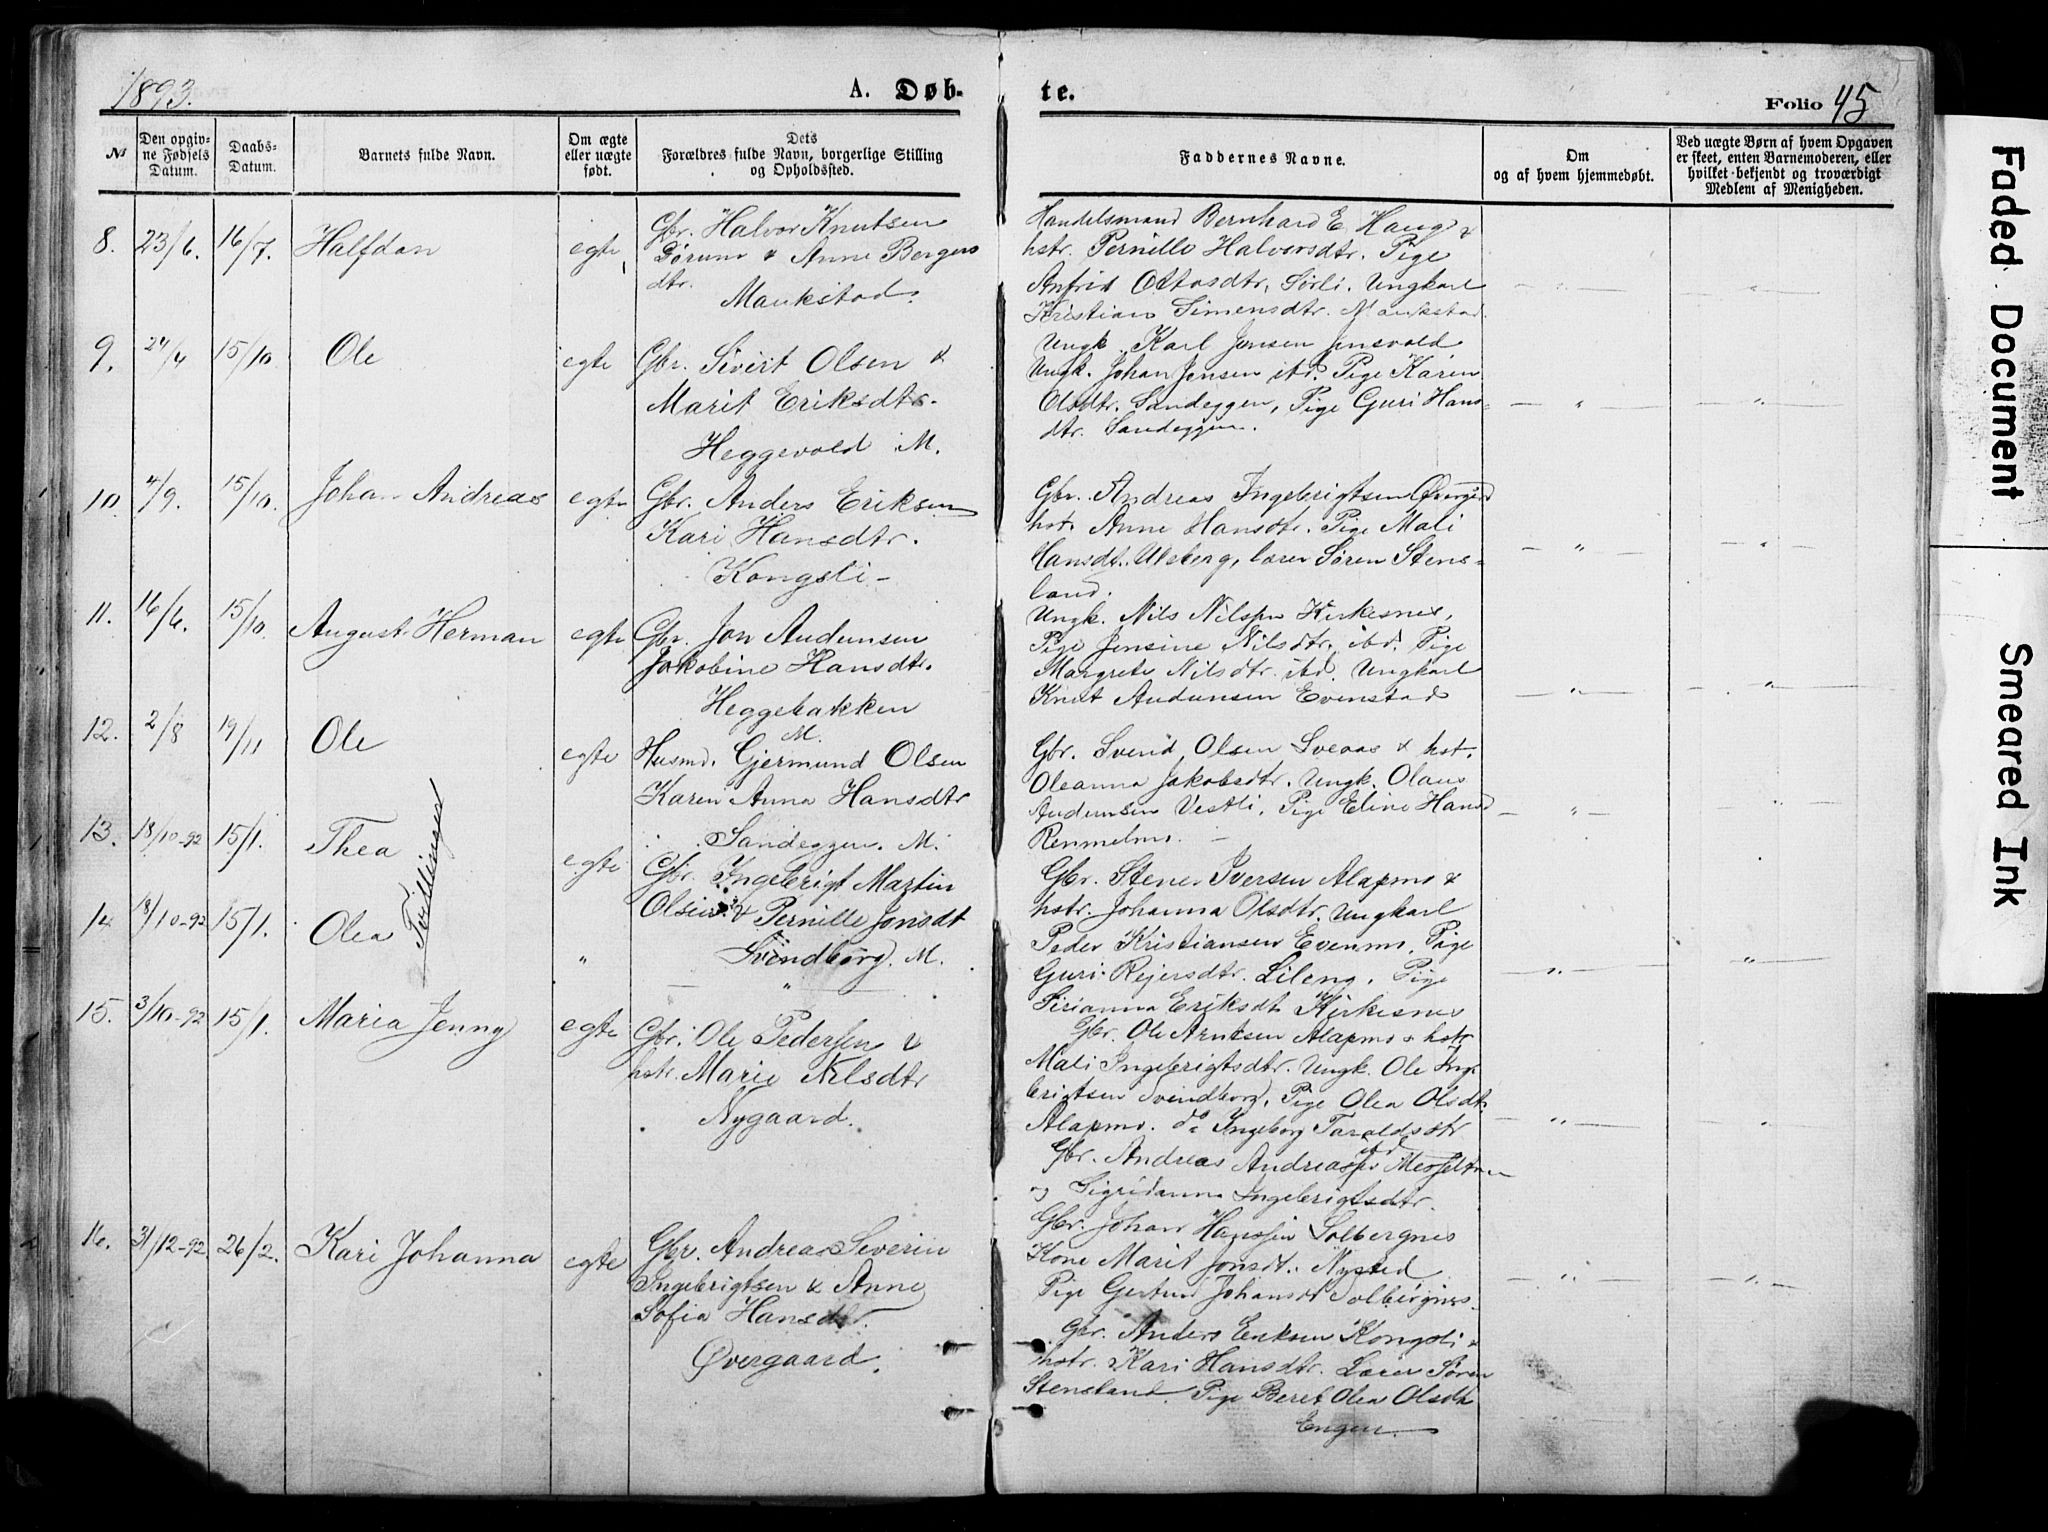 1893.
A. Døb-
te.
Folio 45
№
Den opgiv-
ne Fødsels
Datum.
Daabs-
Datum.
Barnets fulde Navn.
Om ægte
eller uægte
født.
Dets
Forældres fulde Navn, borgerlige Stilling
og Opholdssted.
Faddernes Navne.
Om
og af hvem hjemmedøbt.
Ved uægte Børn af hvem Opgaven
er skeet, enten Barnemoderen, eller
hvilket bekjendt og troværdigt
Medlem af Menigheden.
8. 23/6. 16/7. Halfdan egte
Gbr. Halvor Knutsen
Børum & Anne Bergers
dtr.
Maukstad.
Handelsmand Bernhard E. Haug &
hstr. Pernille Halvorsdtr. Pige
Anfrid Ottosdtr. Sørli. Ungkarl
Kristian Simensdtr. Maukstad.
9. 24/4 15/10. Ole egte
Gbr. Sivert Olsen &
Marit Eriksdtr.
Heggevold M.
Ungk. Karl Jensen
Ungk. Johan Jensen ibd. Pige Karen
Olsdtr. Sandeggen, Pige Guri Hans-
dtr. Sandeggen.
10. 4/9. 15/10. Johan Andreas egte
Gbr. Anders Eriksen
Kari Hansdtr.
Kongsli -
Gbr. Andreas Ingebrigtsen Øvergrd
hstr. Anne Hansdtr. Pige Mali
Hansdt. Ulsberg, lærer Søren Stens-
land.
11. 16/6. 15/10. August Herman egte
Gbr. Jon Audunsen
Jakobine Hansdtr.
Heggebakken
M.
Ungk. Nils Nilsen Kirkesnes,
Pige Jensine Nilsdtr. ibd. Pige
Margrete Nilsdtr. ibd. Ungkarl
Knut Audunsen Evenstad
12. 2/8 19/11 Ole egte
Husmd. Gjermund Olsen
Karen Anna Hansdtr
Sandeggen. M.
Gbr. Svend Olsen Sveaas & hst.
Oleanna Jakobsdtr. Ungk. Olaus
Audunsen Vestli, Pige Eline Hansd
Remmelmo. -
13. 18/10-92 15/1. Thea egte
Tvillinger
Gbr. Ingebrigt Martin
Olsen & Pernille Jonsdt
Svendborg. M.
Gbr. Stener Iversen Alapmo &
hstr. Johanna Olsdtr. Ungkarl
Peder Kristiansen Evenmo, Pige
Guri Rejersdtr. Lileng, Pige
Sirianna Eriksdt. Kirkesnes
14. 18/10-92 15/1. Olea "
— " —
Gbr. Ole Arntsen Alapmo & hstr
Mali Ingebrigtsdtr. Ungk. Ole Inge
brigtsen Svendborg, Pige Olea Olsdtr
Alapmo. do Ingeborg Taraldsdtr
ibd
15. 3/10-92 15/1. Maria Jenny egte
Gbr. Ole Pedersen &
hstr. Marie Nilsdtr
Nygaard.
Gbr. Andreas Andreassen
og Sigridanna Ingebrigtsdtr.
Gbr. Johan Hanssen Solbergnes
Kone Marit Jonsdt. Nysted
Pige Gertrud Johansdt Solbergnes.
16. 31/12-92. 26/2. Kari Johanna egte
Gbr. Andreas Severin
Ingebrigtsen & Anne
Sofia Hansdtr.
Øvergaard.
Gbr. Anders Eriksen Kongsli &
hstr. Kari Hansdtr. Lærer Søren
Stensland. Pige Beret Olea Olsdtr
Engen.
Faded Document
Smeared Ink